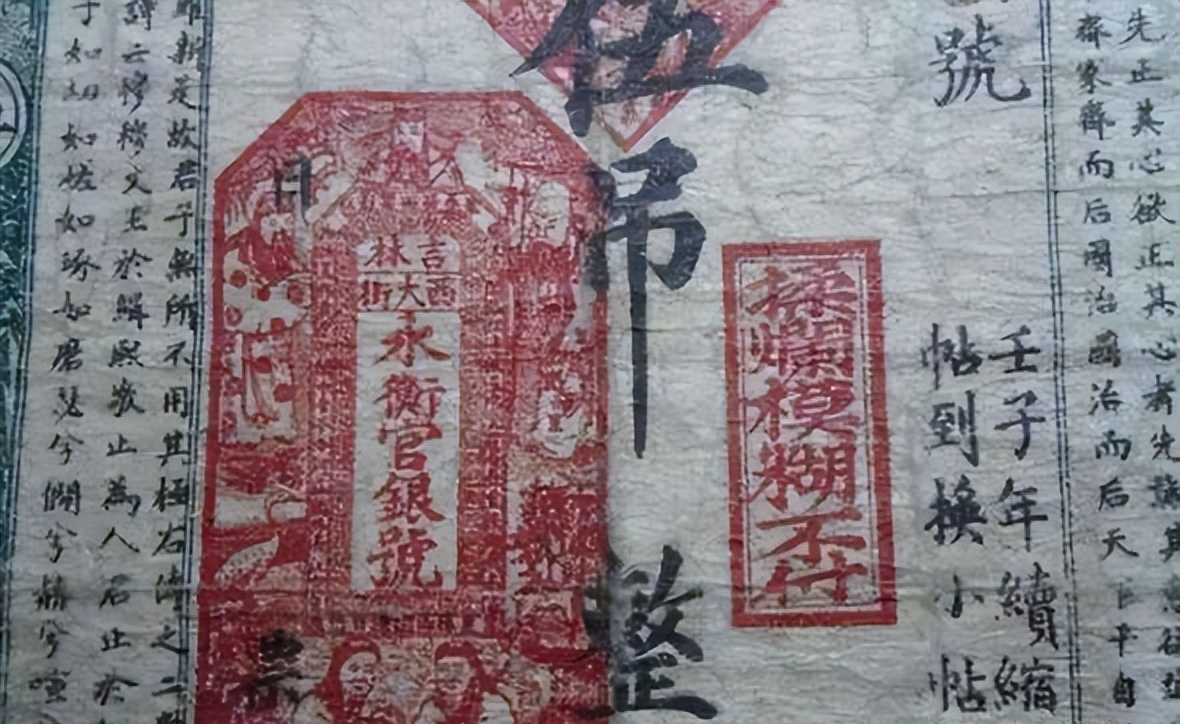 先正其心欲正其心者先誠其意
齊家齊而后國治國治而后天下平自
號
壬子年續縮
帖到換小帖
揉爛模糊不付
伍吊整
吉林
西大街
永衡官銀號
票
新是故君子無所不用其極右傳之二
詩云穆穆文王於緝熙敬止為人君止於
如切如磋如琢如磨瑟兮僩兮赫兮喧